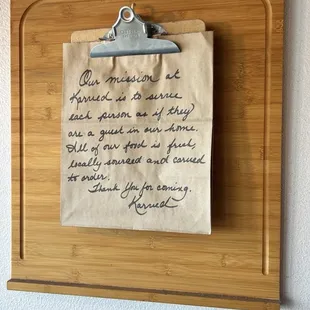 Our mission at
Karved is to serve
each person as if they
are a guest in our home.
All of our food is fresh,
locally sourced and carved
to order.
Thank You for coming.
Karved